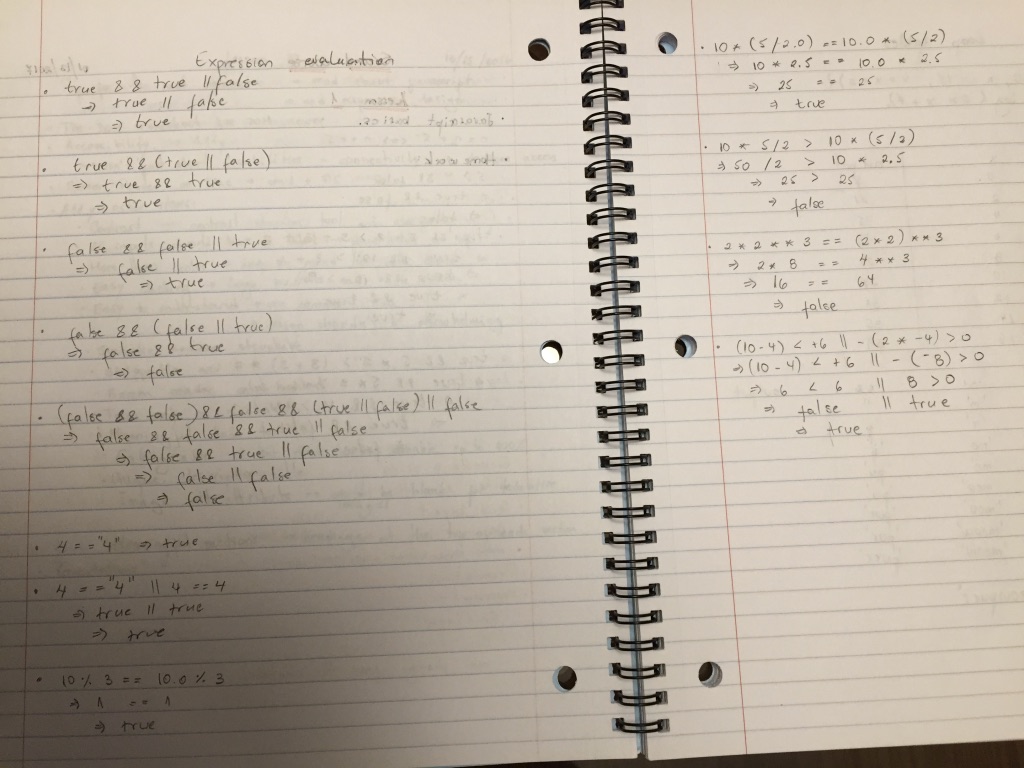 Expression evaluation
• true && true || false
⇒ true || false
⇒ true
• true && (true || false)
⇒ true && true
⇒ true
• false && false || true
⇒ false || true
⇒ true
• false && (false || true)
⇒ false && true
⇒ false
• (false && false) && false && (true || false) || false
⇒ false && false && true || false
⇒ false && true || false
⇒ false || false
⇒ false
• 4 == "4" ⇒ true
• 4 == "4" || 4 == 4
⇒ true || true
⇒ true
• 10 % 3 == 10.0 % 3
⇒ 1 == 1
⇒ true
• 10 * (5/2.0) == 10.0 * (5/2)
⇒ 10 * 2.5 == 10.0 * 2.5
⇒ 25 == 25
⇒ true
• 10 * 5/2 > 10 * (5/2)
⇒ 50 /2 > 10 * 2.5
⇒ 25 > 25
⇒ false
• 2 * 2 ** 3 == (2*2) ** 3
⇒ 2 * 8 == 4 ** 3
⇒ 16 == 64
⇒ false
• (10-4) < +6 || -(2 * -4) > 0
⇒ (10-4) < +6 || -(-8) > 0
⇒ 6 < 6 || 8 > 0
⇒ false || true
⇒ true